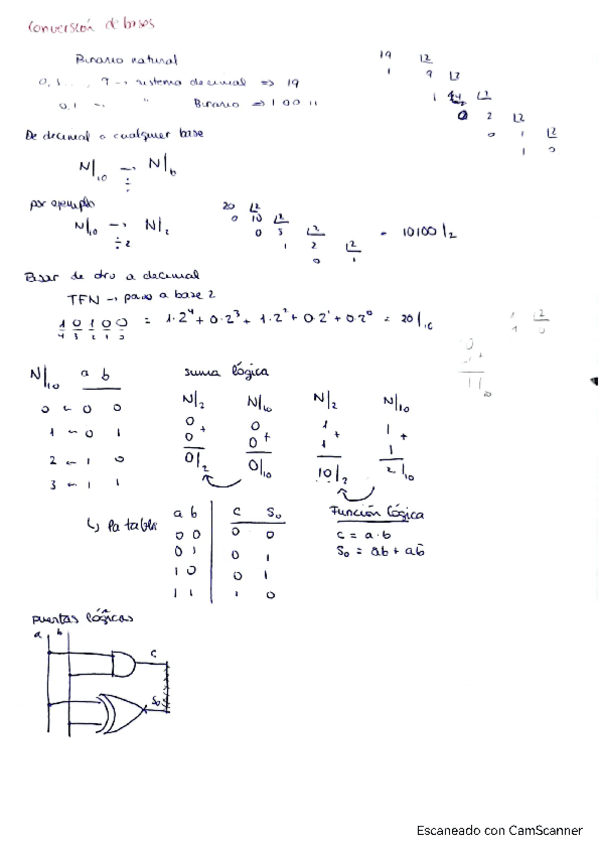 Conversión de bases
Binario natural
0, 1 ..., 9 → sistema decimal => 19
0,1 → " Binario => 10011
19 |2
1 9 |2
1 4 |2
0 2 |2
0 1 |2
1 0
De decimal a cualquier base
N|10 → N|b
÷
por ejemplo
N|10 → N|2
÷2
20 |2
0 10 |2
0 5 |2
1 2 |2
0 1
= 10100|2
Pasar de otro a decimal
TFN → paso a base 2
1 0 1 0 0 = 1·2⁴ + 0·2³ + 1·2² + 0·2¹ + 0·2⁰ = 20|10
4 3 2 1 0
1 |2
1 0
N|10 a b
0 ← 0 0
1 ← 0 1
2 ← 1 0
3 ← 1 1
suma lógica
N|2 N|10 N|2 N|10
0 + 0 + 1 + 1 +
0 0 1 1
0|2 0|10 10|2 2|10
↳ Pa tabla
a b C S₀
0 0 0 0
0 1 0 1
1 0 0 1
1 1 1 0
Función lógica
C = a·b
S₀ = āb + ab̄
puertas lógicas
a b
C
S₀
Escaneado con CamScanner